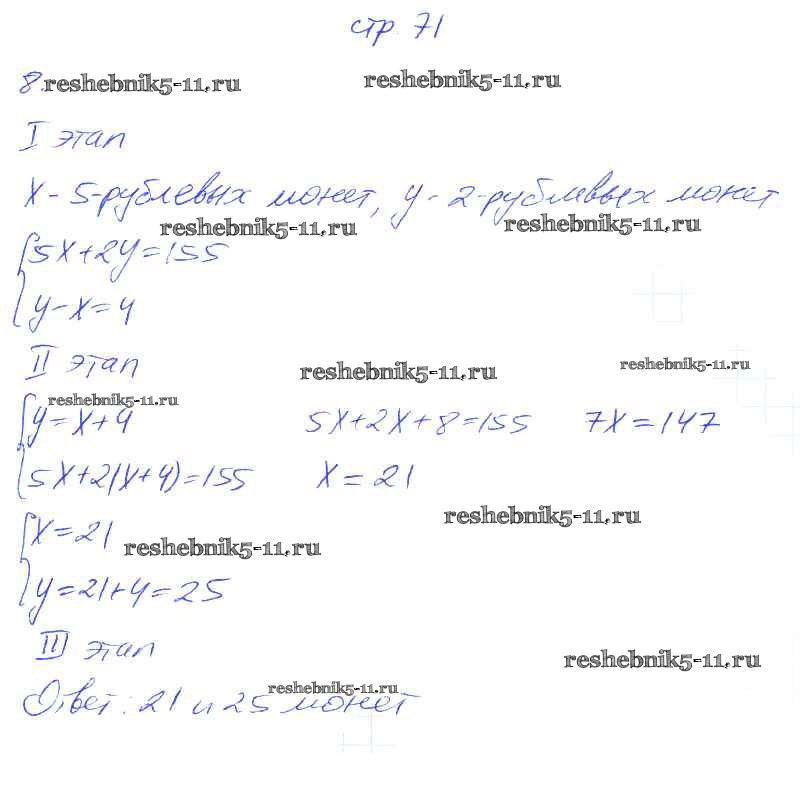 стр. 71
8. reshebnik5-11.ru reshebnik5-11.ru
I этап
x - 5-рублевых монет, y - 2-рублевых монет
reshebnik5-11.ru reshebnik5-11.ru
{5x+2y=155
{y-x=4
II этап reshebnik5-11.ru reshebnik5-11.ru
reshebnik5-11.ru
{y=x+4 5x+2x+8=155 7x=147
{5x+2(x+4)=155 x=21
reshebnik5-11.ru
{x=21 reshebnik5-11.ru
{y=21+4=25
III этап reshebnik5-11.ru
reshebnik5-11.ru
Ответ: 21 и 25 монет